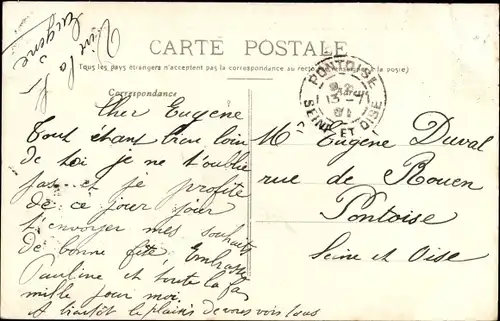 CARTE POSTALE
Tous les pays étrangers n'acceptent pas la correspondance au recto
Correspondance
Cher Eugene
Tout étant bien loin
de toi je ne t'oublie
pas et je profite
de ce jour pour
t'envoyer mes souhaits
de bonne fête Embrasse
Pauline et toute la fa
mille pour moi
A bientôt le plaisir de vous voir tous
PONTOISE
SEINE ET OISE
M Eugène Duval
rue de Rouen
Pontoise
Seine et Oise
Eugène